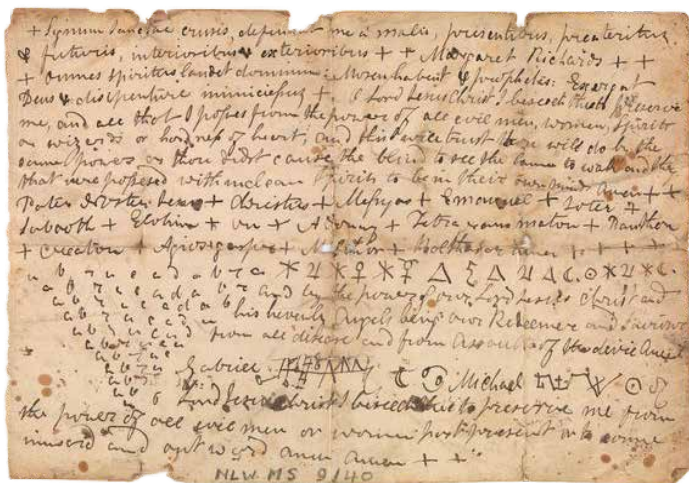 + Signum sanctae crusis, defendat me a malis, presentibus, preateritus
& futuris, interioribus & exterioribus + + Margaret Richards + +
+ omnes spiritus laudet dominum: Mosen habent & prophetas: Exergat
Deus & disipenture inimiciessus + . O Lord Jesus Christ I beseech thee to preserve
me, and all that I posses from the power of all evil men, women, spirits
or wizards or hardness of heart, and this I will trust thou will do by the
same power as thou didst cause the blind to see the lame to walk and the
that were possesed with unclean spirits to be in their own minds Amen + +
Pater Noster + Christus + Messyas + Emanuel + Soter +
Sabaoth + Elohim + on + Adonay + Tetra gramaton +
+ Creator + + + Balthasar amen + + + + +
a b r a c a d a b r a
a b r a c a d a b r and by the power of our Lord Jesus Christ and
a b r a c a d a b his hevenly Angels being our Redeemer and Saviour
a b r a c a d a from all disease and from Assaults of the devil Amen
a b r a c a d
a b r a c a
a b r a c
a b r a Gabriel Michael
a b r
a b
a O Lord Jesus Christ I beseech thee to preserve me from
the power of all evil men or women past present or to come
inward and outward amen amen + +
NLW MS 9140